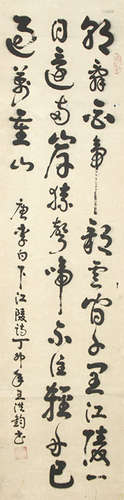 朝辭白帝彩雲間千里江陵一
日還兩岸猿聲啼不住輕舟已
過萬重山
唐李白下江陵詩丁卯年王洪鈞書